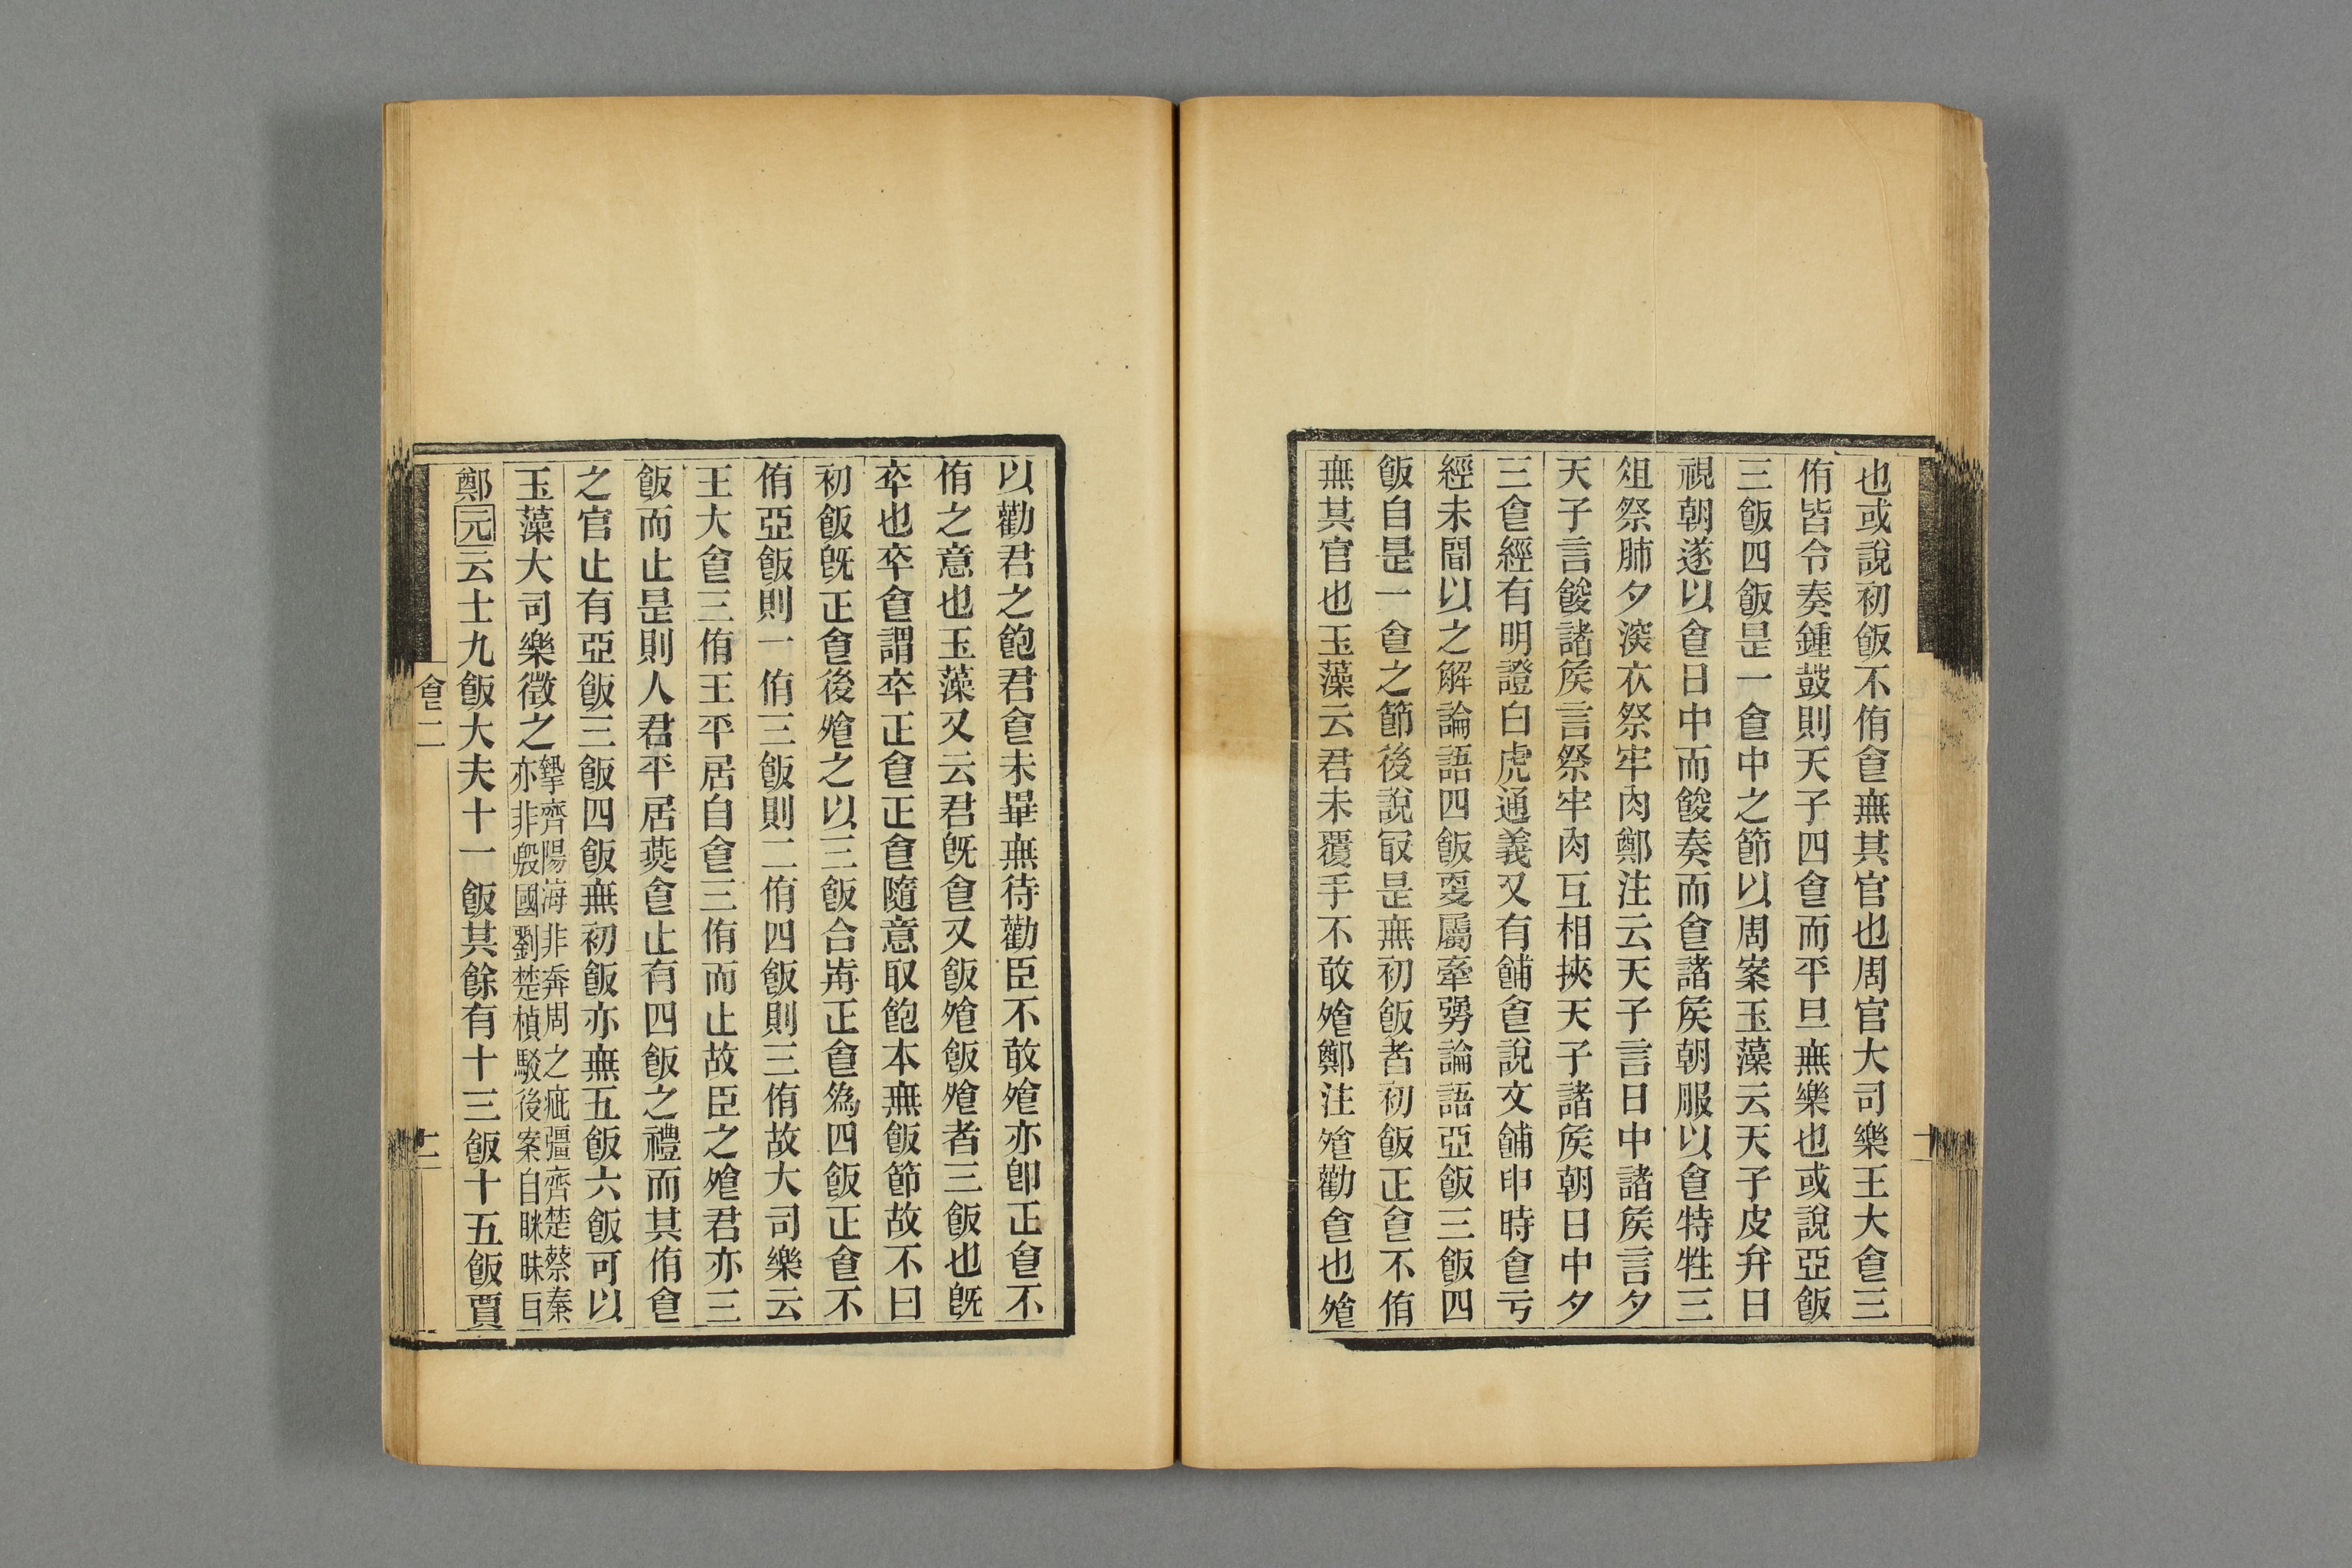 也或說初飯不侑食無其官也周官大司樂王大食三
侑皆令奏鍾鼓則天子四食而平旦無樂也或說亞飯
三飯四飯是一食中之節以周案玉藻云天子皮弁日
視朝遂以食日中而餕奏而食諸矦朝服以食特牲三
俎祭肺夕深衣祭牢肉鄭注云天子言日中諸矦言夕
天子言餕諸矦言祭牢肉互相挾天子諸矦朝日中夕
三食經有明證白虎通義又有餔食說文餔申時食亏
經未聞以之解論語四飯耎屬牽彊論語亞飯三飯四
飯自是一食之節後說冣是無初飯者初飯正食不侑
無其官也玉藻云君未覆手不敢飧鄭注飧勸食也飧
以勸君之飽君食未畢無待勸臣不敢飧亦卽正食不
侑之意也玉藻又云君旣食又飯飧飯飧者三飯也旣
卒也卒食謂卒正食正食隨意取飽本無飯節故不曰
初飯旣正食後飧之以三飯合歬正食爲四飯正食不
侑亞飯則一侑三飯則二侑四飯則三侑故大司樂云
王大食三侑王平居自食三侑而止故臣之飧君亦三
飯而止是則人君平居燕食止有四飯之禮而其侑食
之官止有亞飯三飯四飯無初飯亦無五飯六飯可以
玉藻大司樂徵之摯齊陽海非奔周之疵彊齊楚蔡秦
亦非殷國劉楚楨駁後案自眯昧目
鄭元云士九飯大夫十一飯其餘有十三飯十五飯賈
食二
二